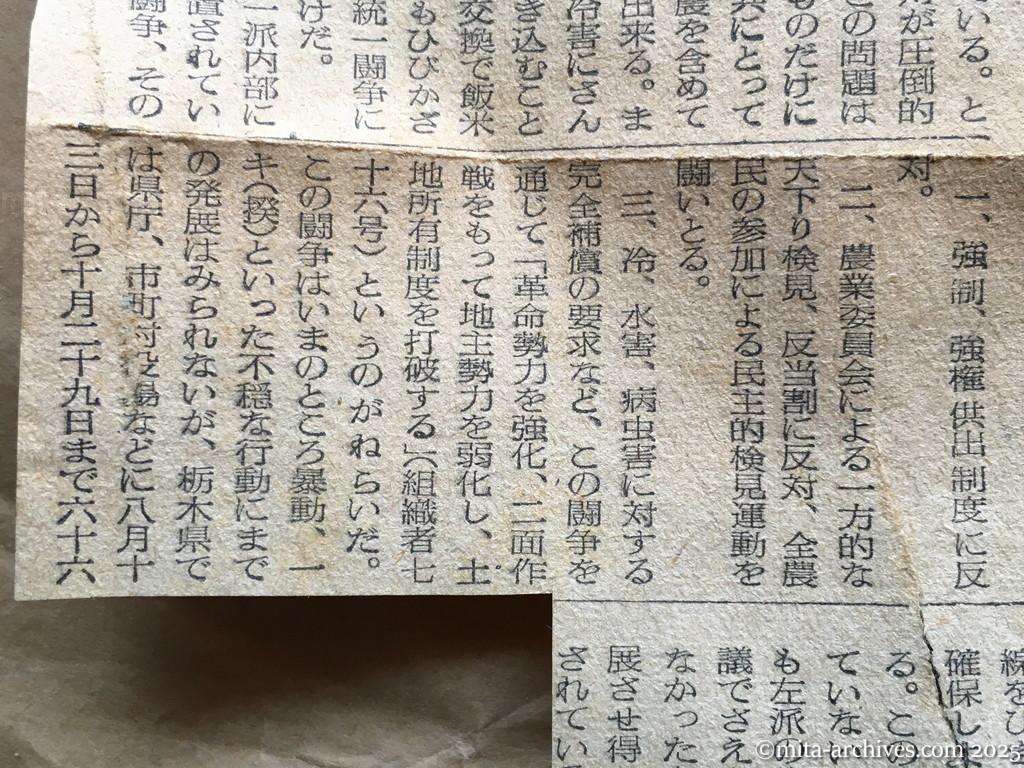 いる。と
が圧倒的
この問題は
ものだけに
共にとって
農を含めて
出来る。ま
冷害にさん
き込むこと
交換で飯米
もひびかざ
統一闘争に
けだ。
一派内部に
置されてい
闘争、その
一、強制、強権供出制度に反
対。
二、農業委員会による一方的な
天下り検見、反当割に反対、全農
民の参加による民主的検見運動を
闘いとる。
三、冷、水害、病虫害に対する
完全補償の要求など、この闘争を
通じて「革命勢力を強化、二面作
戦をもって地主勢力を弱化し、土
地所有制度を打破する」（組織者七
十六号）というのがねらいだ。
この闘争はいまのところ暴動、一
キ（揆）といった不穏な行動にまで
の発展はみられないが、栃木県で
は県庁、市町村役場などに八月十
三日から十月二十九日まで六十六
線をひ
確保し
る。この
ていない
も左派の
議でさえ
なかった
展させ得
されてい
©mita-archives.com 2025